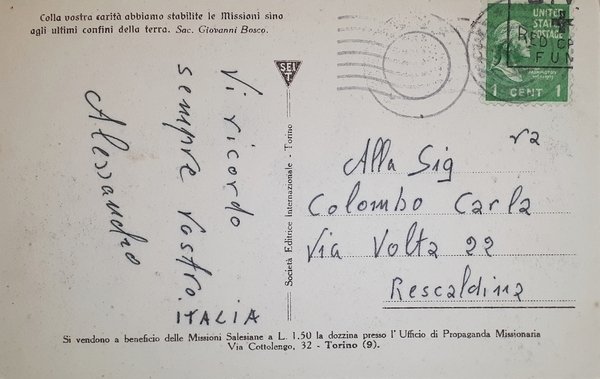 Colla vostra carità abbiamo stabilite le Missioni sino
agli ultimi confini della terra. Sac. Giovanni Bosco.
Vi ricordo
sempre vostro
Alessandro
ITALIA
SEI
T
Società Editrice Internazionale - Torino
UNITED
STATES
POSTAGE
WASHINGTON
1 CENT 1
RED CR
FUN
Alla Sig ra
Colombo Carla
Via Volta 22
Rescaldina
Si vendono a beneficio delle Missioni Salesiane a L. 1,50 la dozzina presso l'Ufficio di Propaganda Missionaria
Via Cottolengo, 32 - Torino (9).